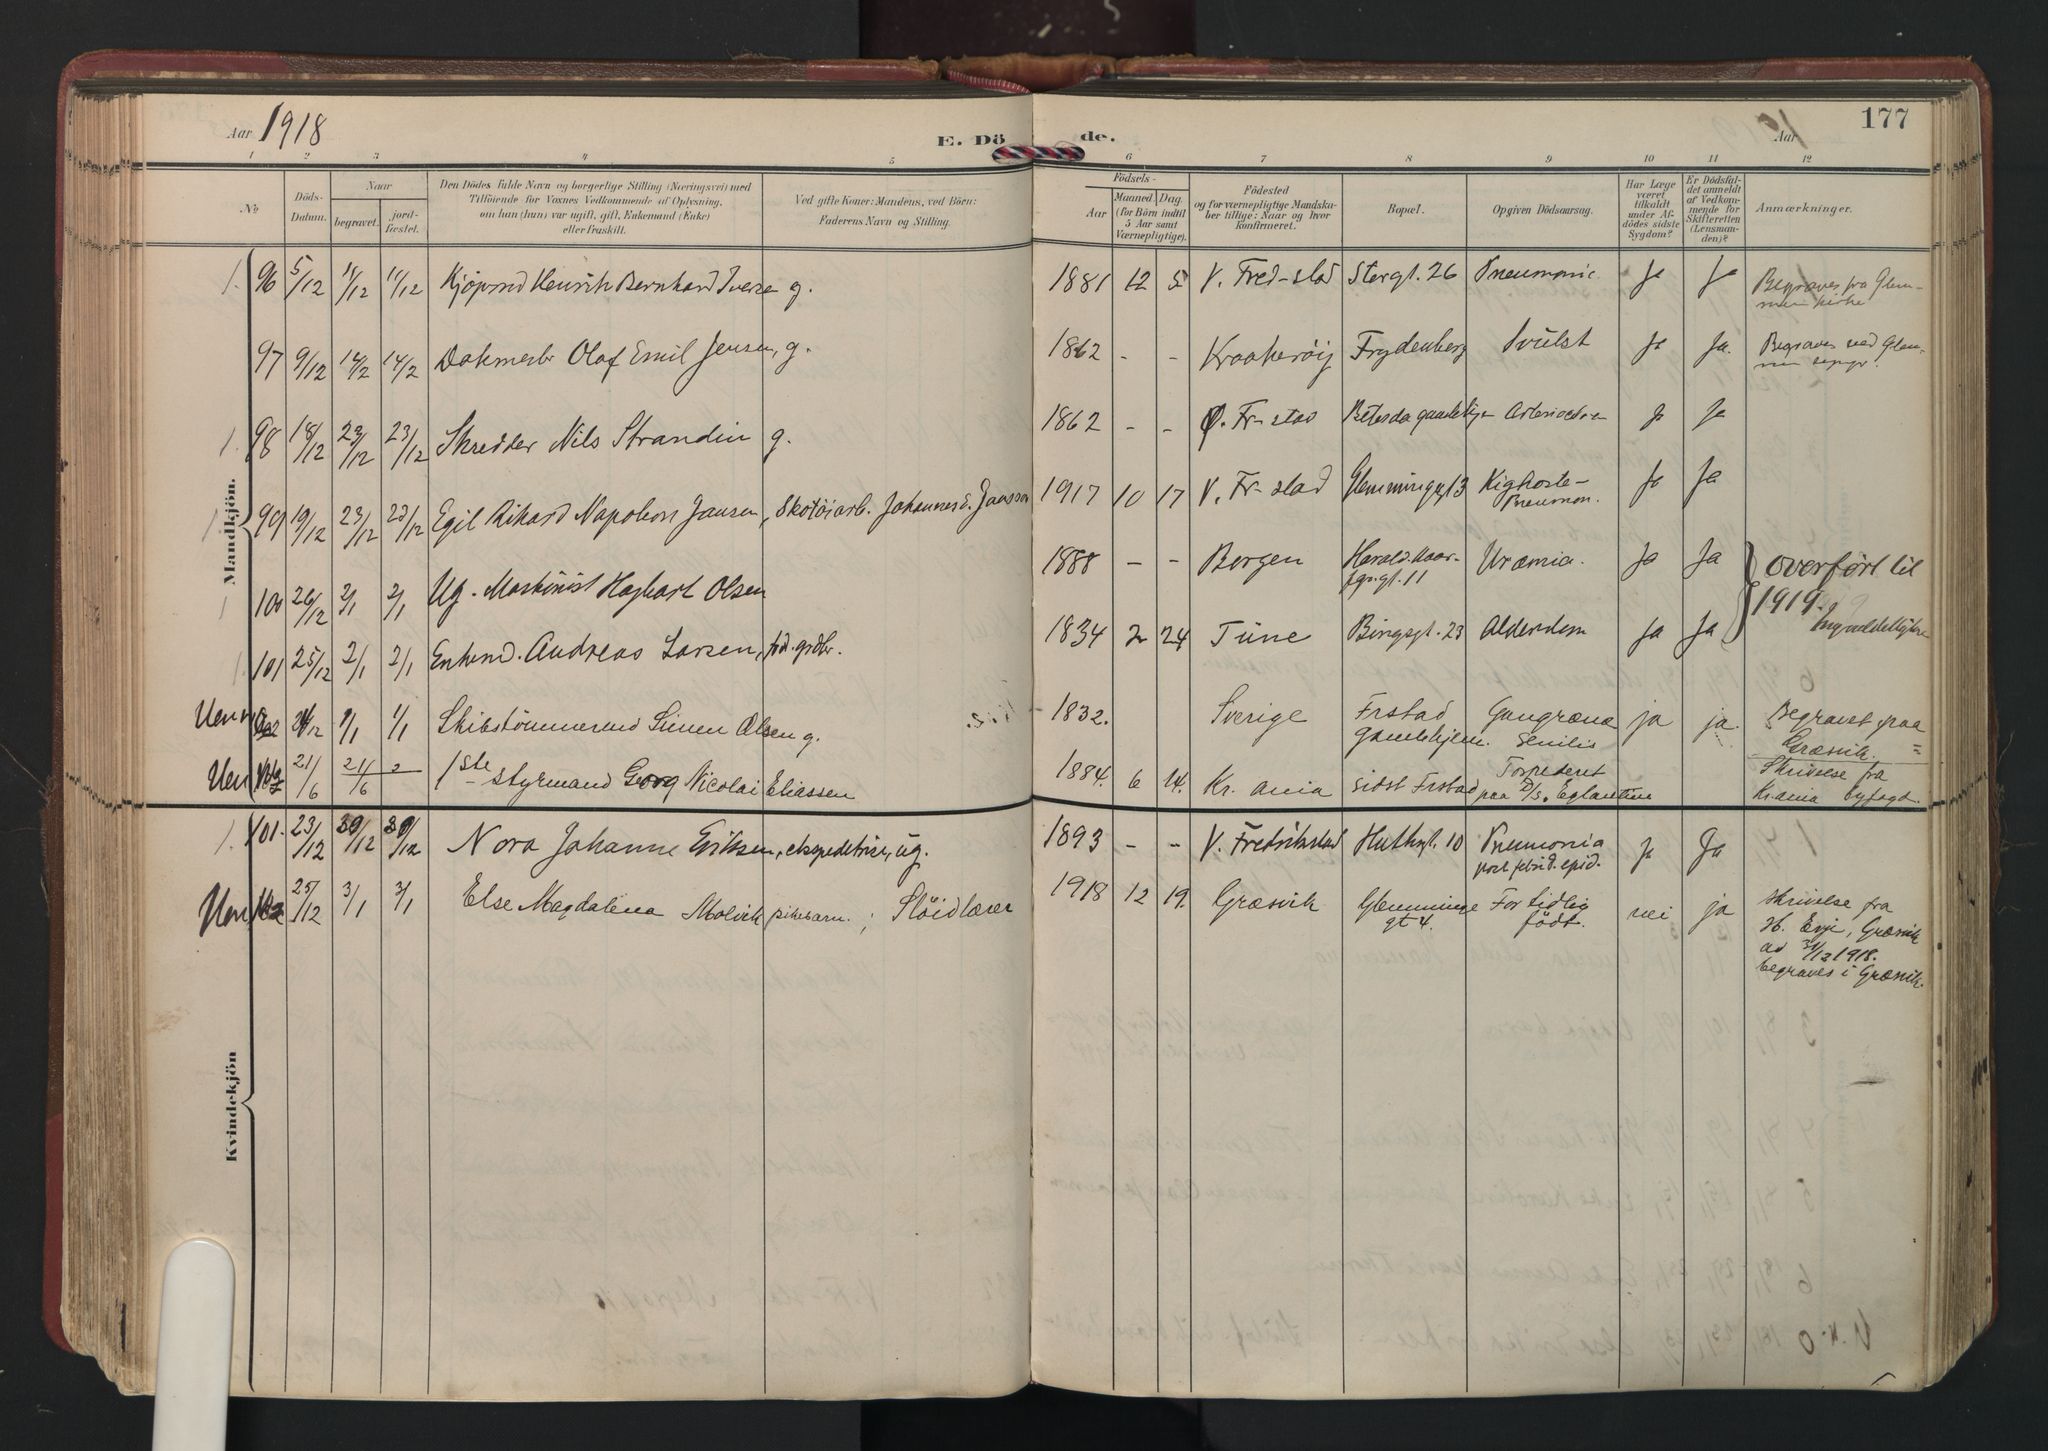 Aar 1918
E. Dö
de.
Aar
177
1 2 3 4 5 6 7 8 9 10 11 12
No
Döds-
Datum.
Naar
begravet.
jord-
fæstet.
Den Dödes fulde Navn og borgerlige Stilling (Næringsvei) med
Tilföiende for Voxnes Vedkommende af Oplysning,
om han (hun) var ugift, gift, Enkemand (Enke)
eller fraskilt.
Ved gifte Koner: Mandens, ved Börn:
Faderens Navn og Stilling.
Födsels-
Aar
Maaned Dag
(for Börn indtil
5 Aar samt
Værnepligtige).
Födested
og for værnepligtige Mandska-
ber tillige: Naar og hvor
konfirmeret.
Bopæl.
Opgiven Dödsaarsag.
Har Læge
været
tilkaldt
under Af-
dödes sidste
Sygdom?
Er Dödsfal-
det anmeldt
af Vedkom-
mende for
Skifteretten
(Lensman-
den)?
Anmærkninger.
Mandkjön.
96 5/12 11/12 11/12 Kjøpmd Henrik Bernhard Iversen g. 1881 12 5 V. Fred-stad Storgt. 26 Pneumonie Ja Ja Begraves fra Glem-
men kirke
97 9/12 14/12 14/12 Dokmester Olaf Emil Jensen, g. 1862 - - Kraakerøy Frydenberg Svulst Ja Ja. Begraves ved Glem-
men
98 18/12 23/12 23/12 Skredder Nils Strandin g. 1862 - - Ø. Fr-stad Betesda gamlehjem Ja Ja
99 19/12 23/12 23/12 Egil Rikard Napoleon Jansen, Skotøiarb. Johannes E. Jansson 1917 10 17 V. Fr-stad Glemminggt 3 Kighoste-
Pneumon. Ja Ja
100 26/12 2/1 2/1 Ug. Maskinist Hagbart Olsen 1888 - - Bergen Harald Haar-
fgr.gt. 11 Uræmia. Ja Ja overført til
1919.
101 25/12 2/1 2/1 Enkemd. Andreas Larsen, fhd. grdbr. 1834 2 24 Tune Bingsgt. 23 Alderdom Ja Ja
Uen 1/1 1/1 Skibstømmermd Simen Olsen g. 1832. Sverige Frstad
Gamlehjem. Gangræna
senilis ja ja. Begravet paa
Græsvik.
Uen 21/6 21/6 1ste styrmand Georg Nicolai Eliassen 1884. 6 14. Kr.ania sidst Frstad Torpederet
paa D/S. Eglantine Skrivelse fra
Kr.ania byfogd.
Kvindekjön
101. 23/12 30/12 30/12 Nora Johanne Eriksen, ekspeditrise, ug. 1893 - - V. Fredrikstad Huthgt. 10 Pneumonia
post febrid. epid. Ja Ja
Uen 25/12 3/1 3/1 Else Magdalena Molvik pikebarn. ; Sløidlærer 1918 12 19 Græsvik Glemminge
gt 4. For tidlig
født. nei ja Skrivelse fra
H. Evje, Græsvik
ad 31/12 1918.
begraves i Græsvik.